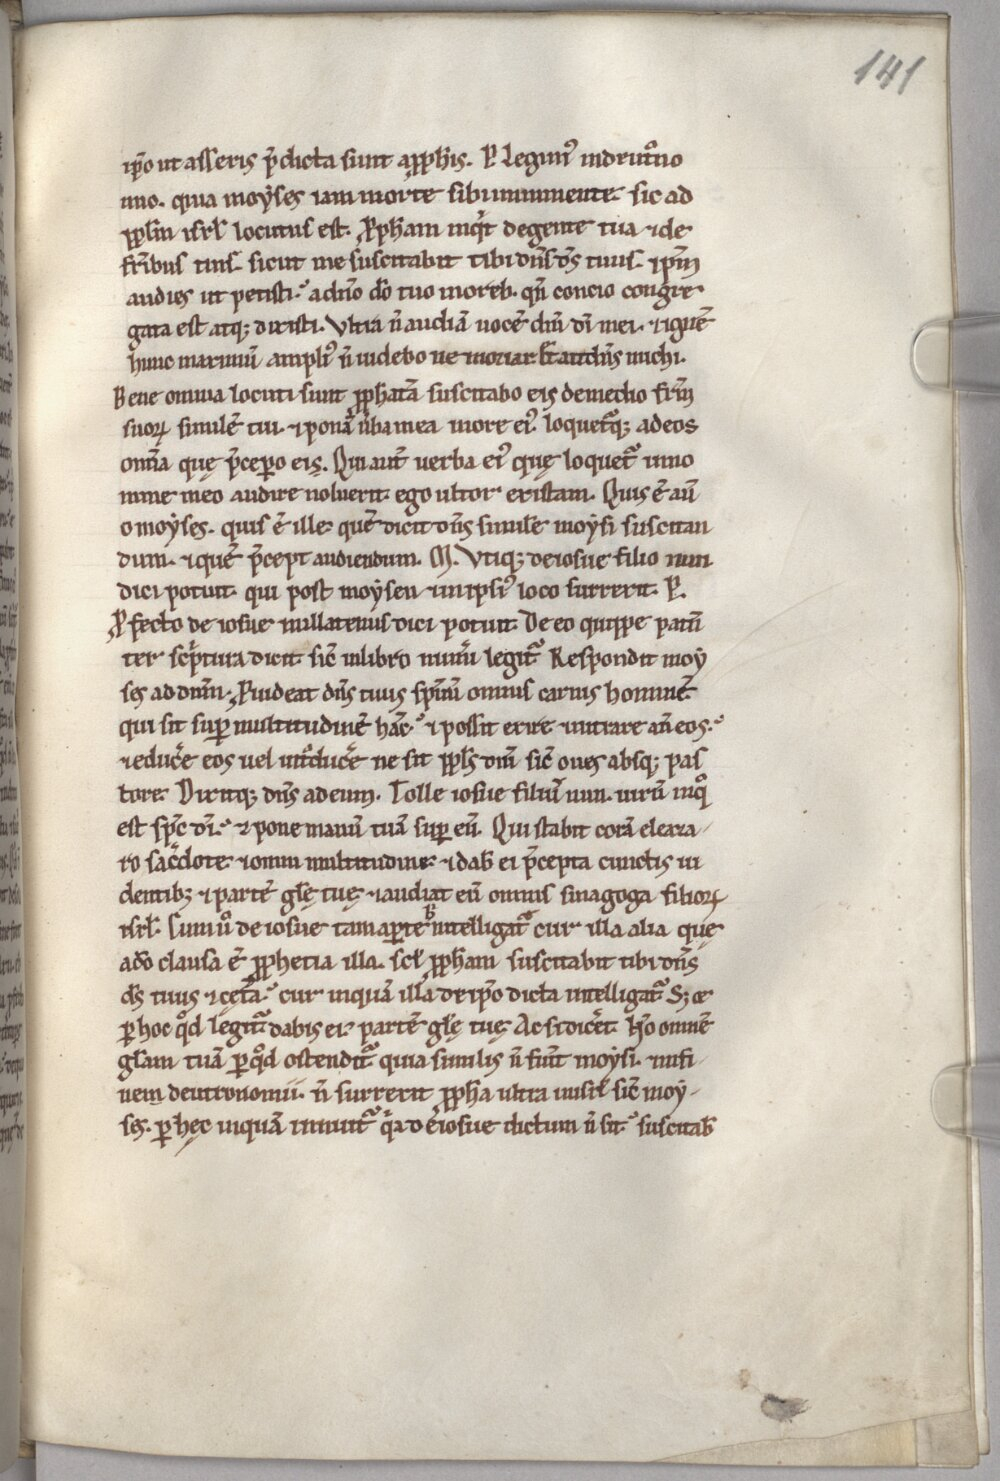 141
ip̄o ut asseris p̄dicta sunt a ꝓph̄is. P̄. Legim᷒ in deut̄ono
mio. quia moẏses iam morte sibi imminente. sic ad
ppl̄m isrl̄ locutus est. Ꝓpham inq̇t de gente tua ⁊ de
fr̄ibus tuis. sicut me suscitabit tibi dn̄s ds̄ tuus. ⁊ ip̄m
audies ut petisti. a dn̄o dō tuo in oreb. qn̄ concio congre
gata est atq; dixisti. Vltra n̄ audiā uocē dn̄i dī mei. ⁊ ignē
hunc maximū ampli᷒ n̄ uidebo ne moriar. Et ait dn̄s michi.
Bene omnia locuti sunt ꝓphetā suscitabo eis de medio fr̄m
suoꝝ similē tui. ⁊ ponā ūba mea in ore ei᷒. loquet᷑q; ad eos
om̄ia quę p̄cepero eis. Qui aut̄ uerba ei᷒ quę loquet᷑ in no
mine meo audire noluerit. ego ultor existam. Quis ē aū
o moẏses. quis ē ille. quē dicit dn̄s simile moẏsi suscitan
dum. ⁊ quē p̄cepit audiendum. M. Vtiq; de iosue filio nun
dici potuit. qui post moẏsen ⁊ in ipsi᷒ loco surrexit. P̄.
Ꝓfecto de iosue nullatenus dici potuit. De eo quippe patēn
ter sc̄ptura dicit. sic̄ in libro num̄i legit᷑. Respondit moẏ
ses ad dn̄m. Ꝓuideat dn̄s tuus spm̄m omnis carnis hominē
qui sit sup̱ multitudinē hāc. ⁊ possit exire ⁊ intrare an̄ eos.
⁊ educ̄e eos uel intr̄duc̄e ne sit ppl̄s dn̄i sic̄ oues absq; pas
tore. Dixitq; dn̄s ad eum. Tolle iosue filiū nun. uirū in q̊
est sp̄c dī. ⁊ pone manū tuā sup̱ eū. Qui stabit corā eleaza
ro sac̄dote ⁊ omni multitudine. ⁊ dab̄ ei p̄cepta cunctis ui
dentib; ⁊ partē gl̄ę tuę. ⁊ audiat eū omnis sinagoga filioꝝ
isrl̄. Si in ů de iosue tam aperte intelligat᷑ cur illa alia quę
adō clausa ē ꝓphetia illa. scl̄ ꝓpham suscitabit tibi dn̄s
ds̄ tuus ⁊ cet̄a. cur inquā illa de ip̄o dicta intelligat᷑. S; ⁊
ꝑ hoc q̊d legit᷑ dabis ei partē gl̄ę tuę. Ac si dic̄et. Nō omnē
gl̄am tuā. ꝑ q̊d ostendit᷑ quia similis n̄ fuit moẏsi. ⁊ in fi
nem deutronomii. n̄ surrexit ꝓpha ultra in isrl̄ sic̄ moẏ
ses. ꝑ hęc inquā innuit᷑ q̇a de iosue dictum n̄ sit. suscitab̄